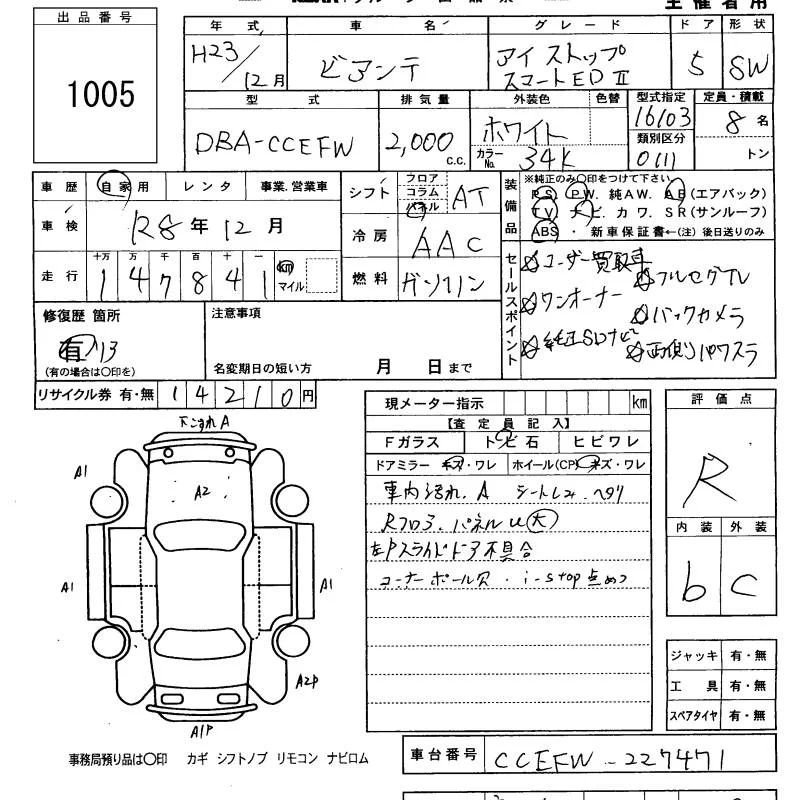 出品番号
1005
主催者用
年式 車名 グレード ドア 形状
H23/12月 ビアンテ アイストップ スマートED II 5 SW
型式 排気量 外装色 色替 型式指定 定員・積載
DBA-CCEFW 2,000 c.c. ホワイト 16103 8名
カラーNo. 34K 類別区分 0111 トン
車歴 自家用 レンタ 事業.営業車
シフト フロア コラム パネル AT
車検 R8年12月
冷房 AAC
走行 十万 万 千 百 十 一
147841 km マイル
燃料 ガソリン
装備品
※純正のみ○印をつけて下さい
PS. PW. 純AW. AB(エアバック)
TV ナビ. カワ. SR(サンルーフ)
ABS ・ 新車保証書←(注)後日送りのみ
セールスポイント
ユーザー買取車
フルセグTV
ワンオーナー
バックカメラ
純正SDナビ
両側パワスラ
修復歴 箇所
有 13
(有の場合は○印を)
注意事項
名変期日の短い方 月 日まで
リサイクル券 有・無 14210円
下こすれA
A1
A2
A1
A1
A2P
A1P
現メーター指示 km
【査定員記入】
Fガラス トビ石 ヒビワレ
ドアミラー キズ・ワレ ホイール(CP) キズ・ワレ
車内汚れ.A シートしみ.ヘタリ
Rフロア.パネルU大
左Pスライドドア不具合
コーナーポール穴・i-stop点めつ
評価点
R
内装 外装
b C
ジャッキ 有・無
工具 有・無
スペアタイヤ 有・無
事務局預り品は○印 カギ シフトノブ リモコン ナビロム
車台番号 CCEFW-227471